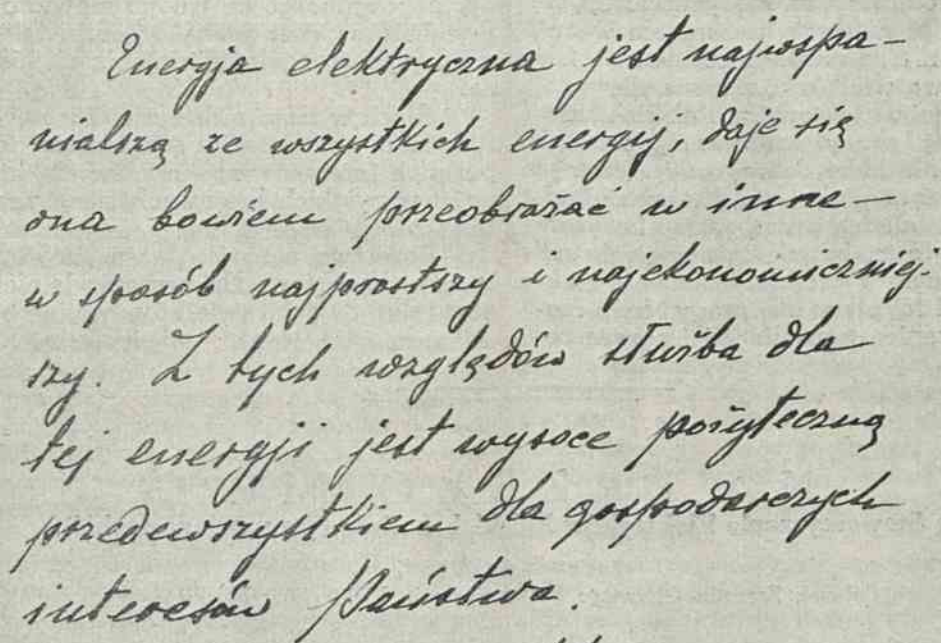 Energja elektryczna jest najwspa-
nialszą ze wszystkich energij, daje się
ona bowiem przeobrażać w inne —
w sposób najprostszy i najekonomiczniej-
szy. Z tych względów służba dla
tej energji jest wysoce pożyteczną
przedewszystkiem dla gospodarczych
interesów Państwa.